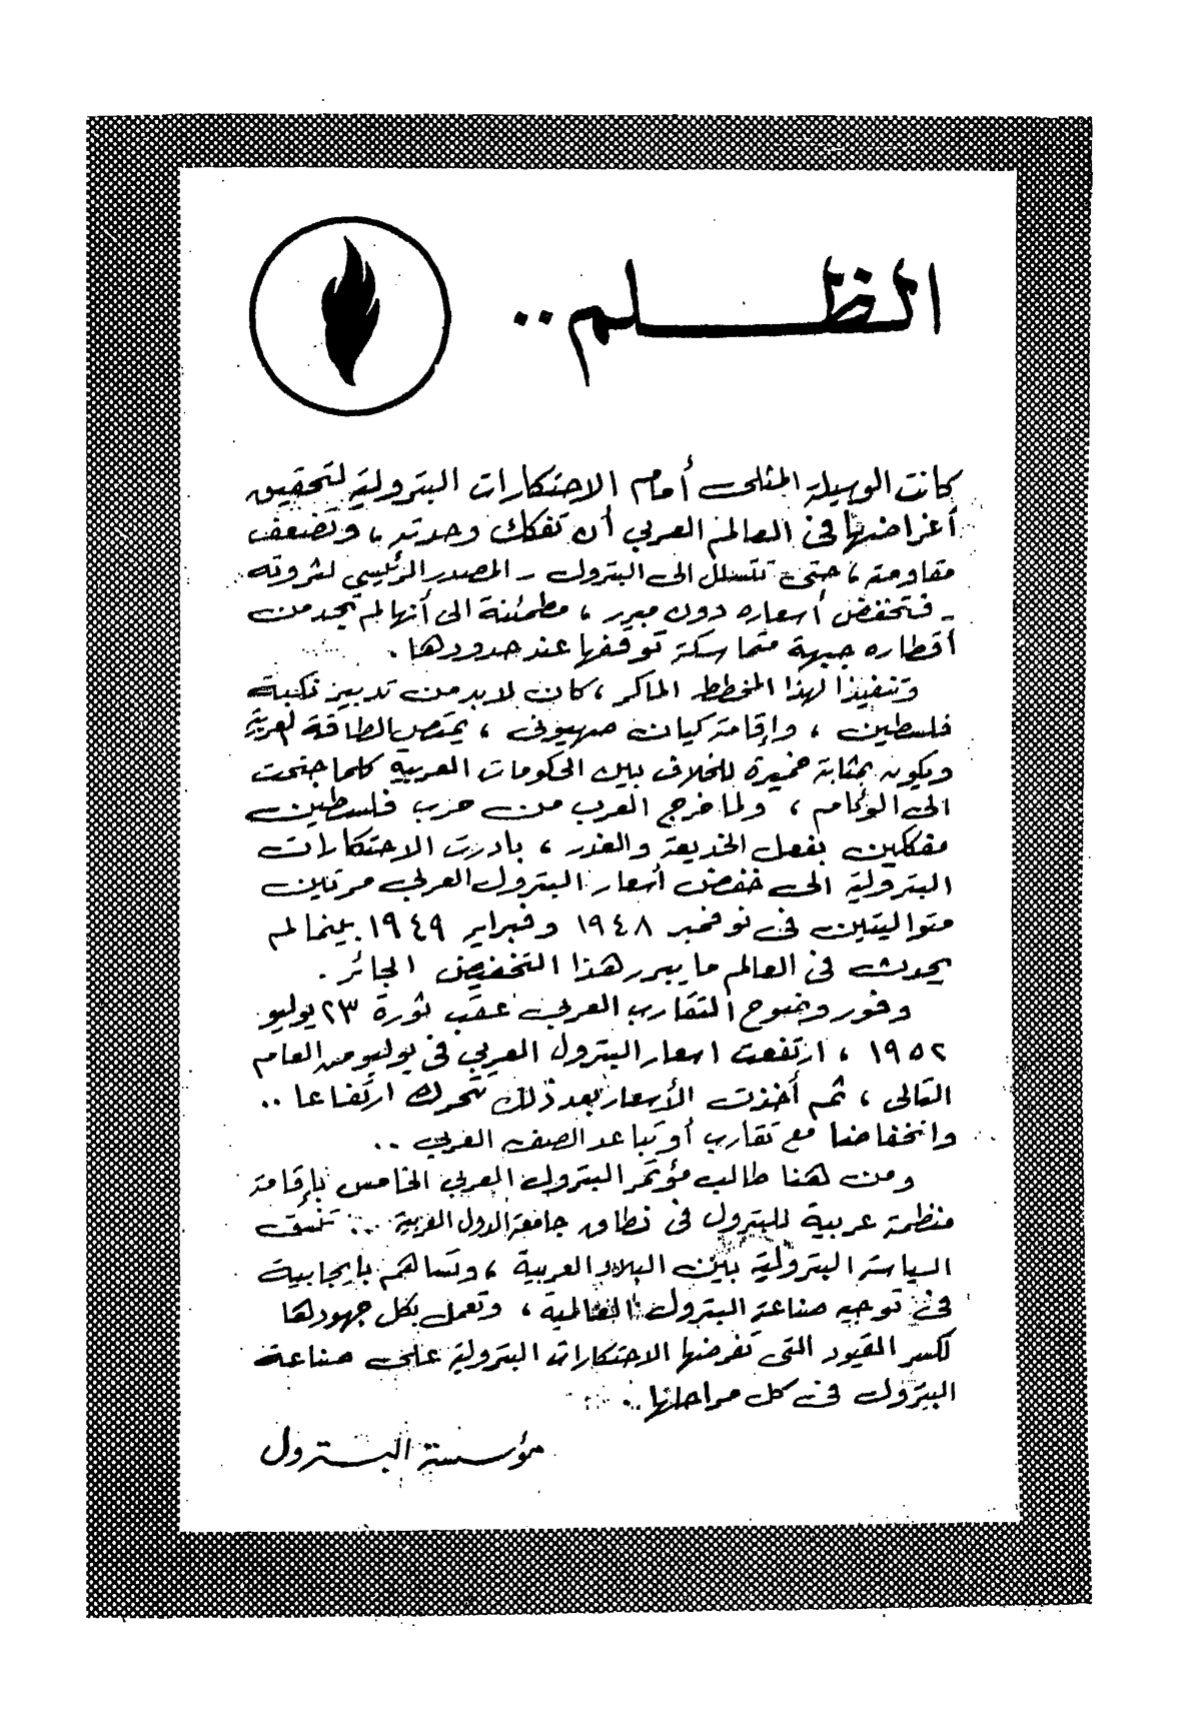 الظلم ..
كانت الوسيلة المثلى أمام الاحتكارات البترولية لتحقيق
أغراضها فى العالم العربي أن تفكك وحدته ، وتضعف
مقاومته ، حتى تتسلل الى البترول ـ المصدر الرئيسي لثروته
ـ فتخفض أسعاره دون مبرر ، مطمئنة الى أنها لم تجد من
أقطاره جبهة متماسكة توقفها عند حدودها .
وتنفيذا لهذا المخطط الماكر ، كان لابد من تدبير نكبة
فلسطين ، وإقامة كيان صهيونى ، يمتص الطاقة العربية
ويكون بمثابة خميرة للخلاف بين الحكومات العربية كلما جنحت
الى الوئام ، ولما خرج العرب من حرب فلسطين
مفككين بفعل الخديعة والغدر ، بادرت الاحتكارات
البترولية الى خفض أسعار البترول العربى مرتين
متواليتين فى نوفمبر ١٩٤٨ وفبراير ١٩٤٩ بينما لم
يحدث فى العالم ما يبرر هذا التخفيض الجائر .
وفور وضوح التقارب العربى عقب ثورة ٢٣ يوليو
١٩٥٢ ، ارتفعت اسعار البترول العربي فى يوليو من العام
التالى ، ثم أخذت الأسعار بعد ذلك تتحرك ارتفاعا ..
وانخفاضا مع تقارب أو تباعد الصف العربى ..
ومن هنا طالب مؤتمر البترول العربي الخامس بإقامة
منظمة عربية للبترول فى نطاق جامعة الدول العربية .. تنسق
السياسة البترولية بين البلاد العربية ، وتساهم بايجابية
فى توجيه صناعة البترول العالمية ، وتعمل بكل جهودها
لكسر القيود التى تفرضها الاحتكارات البترولية على صناعة
البترول فى كل مراحلها .
مؤسسة البترول